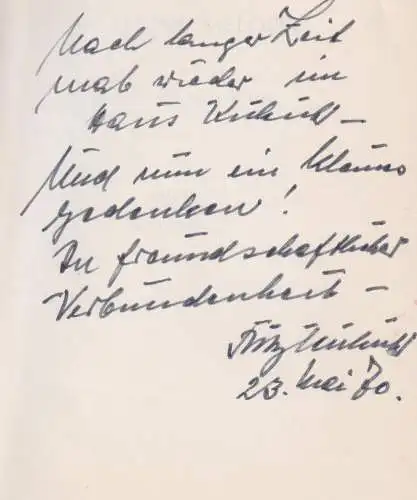 Nach langer Zeit
mal wieder im
Haus
Und nun ein kleines
Gedenken!
In freundschaftlicher
Verbundenheit –
Fritz
23. Mai 70.